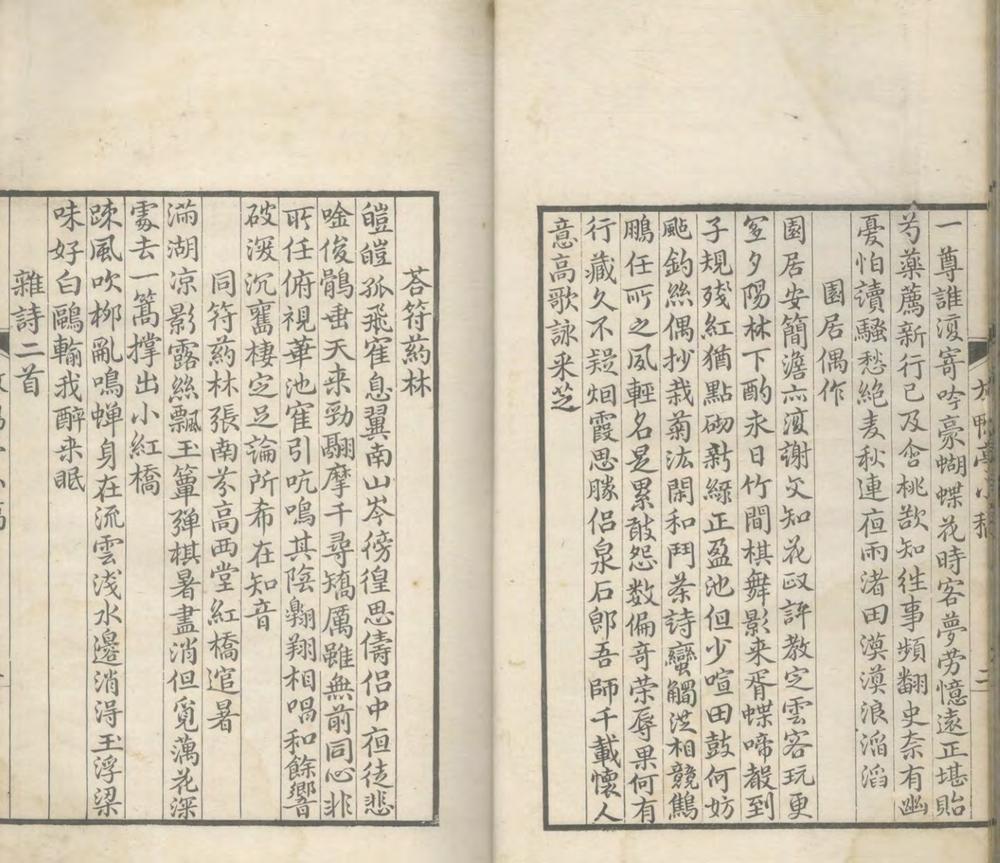 放鴨亭小稿
二
一尊誰復寄吟豪蝴蝶花時客夢勞憶遠正堪貽
芍藥薦新行已及含桃欷知往事頻翻史奈有幽
憂怕讀騷愁絶麦秋連夜雨渚田漠漠浪滔滔
園居偶作
園居安簡澹六復謝交知花政許教定雲客玩更
宜夕陽林下酌永日竹間棋舞影来胥蝶啼殽到
子規殘紅猶點砌新綠正盈池但少喧田鼓何妨
颺釣絲偶抄栽菊法閑和鬥茶詩蠻觸從相競鷦
鵬任所之夙輕名是累敢怨数偏奇荣辱果何有
行藏久不疑烟霞思勝侶泉石郎吾師千載懷人
意高歌詠采芝
荅符葯林
皚皚孤飛寉息翼南山岑徬徨思儔侣中夜徒悲
唫俊鶻乖天来勁翮摩千尋矯厲雖無前同心非
所任俯視華池寉引吭鳴其陰翱翔相唱和餘響
破滾沉舊棲定足論所希在知音
同符葯林張南芬高西堂紅橋逭暑
滿湖凉影露絲飄玉簟弹棋暑盡消但覓藕花深
處去一篙撑出小紅橋
踈風吹栁亂鳴蝉身在流雲浅水邊消得玉浮梁
味好白鷗輸我醉来眠
雜詩二首